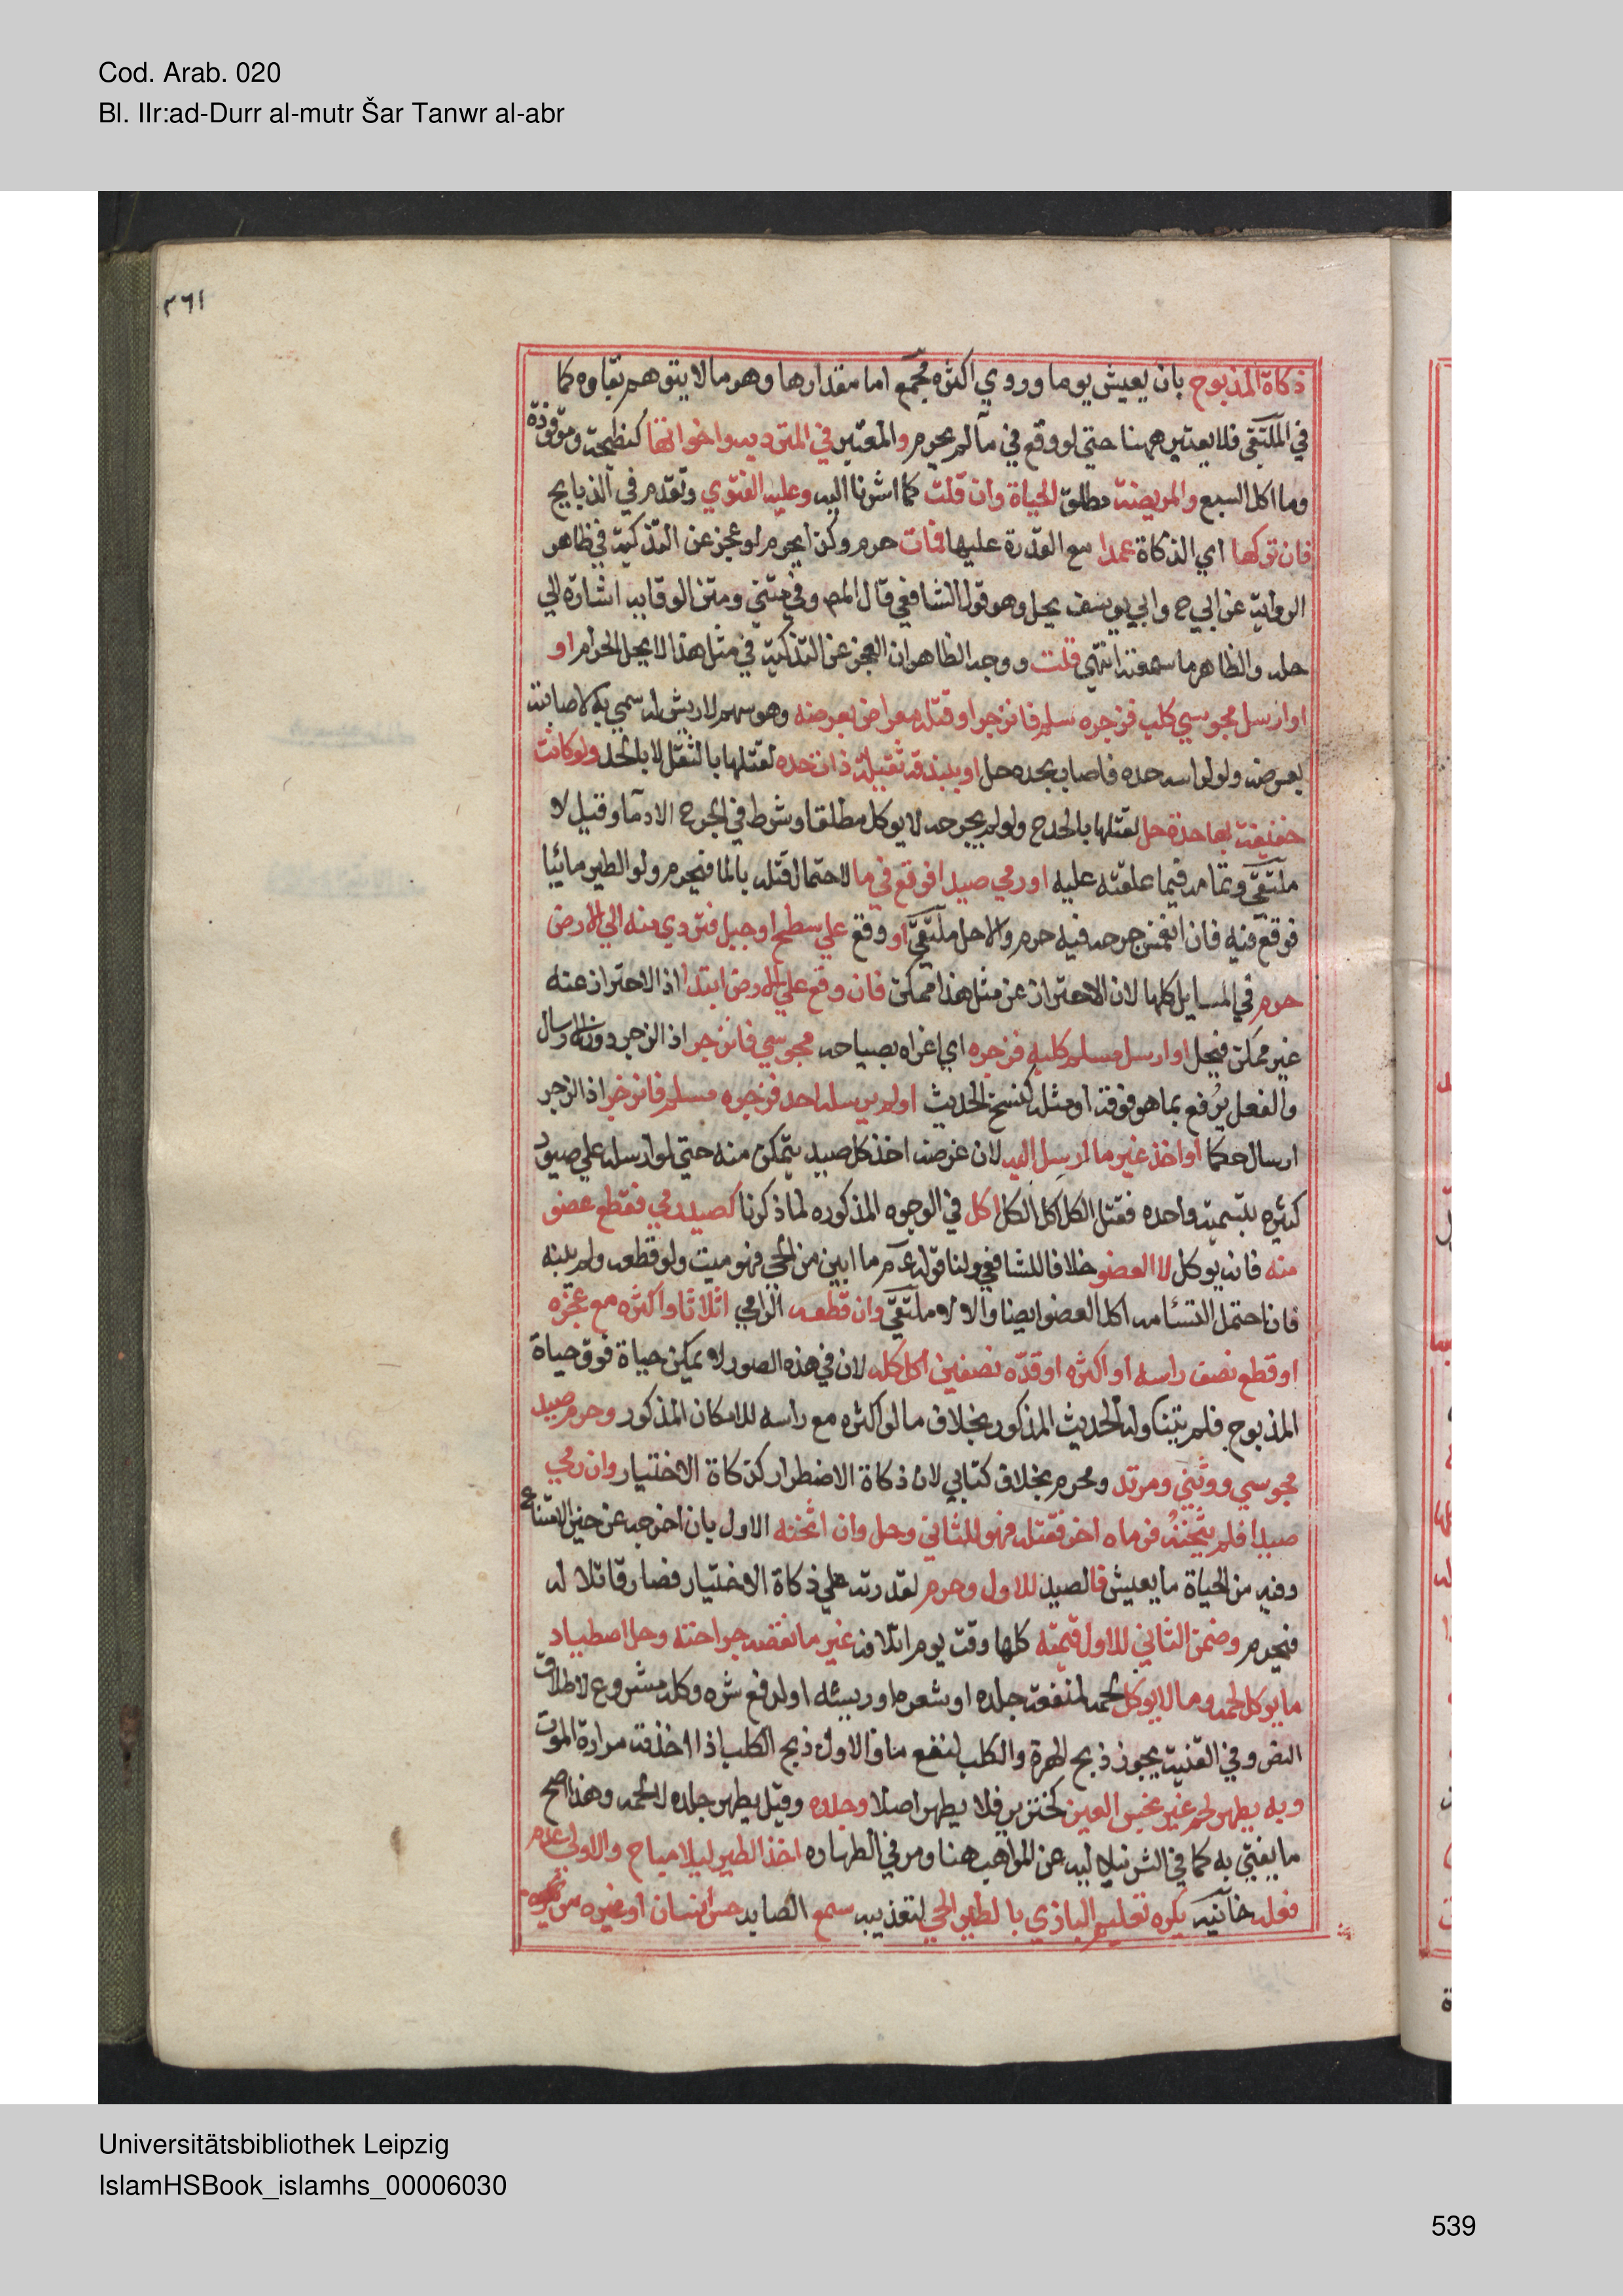 Cod. Arab. 020
Bl. IIr:ad-Durr al-mutr Šar Tanwr al-abr
٢٦١
ذكاة المذبوح بان يعيش يوما وروي اكثره مجمع اما مقدارها وهو ما لا يتوهم بقاوه كما
في الملتقى فلا يعتبر ههنا حتى لو وقع في ما لم يحرم والمعتبر في المترديه واخواتها كنطيحة وموقوذة
وما اكل السبع والمريضة مطلق الحياة وان قلت كما اشرنا اليه وعليه الفتوي وتقدم في الذبايح
فان تركها اي الذكاة عمدا مع القدرة عليها فمات حرم وكذا يحرم لو عجز عن التذكية في ظاهر
الرواية عن ابي ح وابي يوسف يحل وهو قول الشافعي قال المص وفي متني ومتن الوقايه اشارة الي
حله والظاهر ما سمعته انتهي قلت ووجه الظاهر ان العجز عن التذكية في مثل هذا لا يحل الحرام او
او ارسل مجوسي كلبه فزجره مسلم فانزجر او قتله معراض بعرضه وهو سهم لا ريش له سمي به لاصابته
بعرضه ولو لراسه حده فاصاب بحده حل او بندقه ثقيلة ذات حده لقتلها بالثقل لا بالحد ولو كانت
خفيفة بها حدة حل لقتلها بالحد ولو لم يجرحه لا يوكل مطلقا وشرط في الجرح الادما وقيل لا
ملتقي وتمامه فيما علقته عليه او رمي صيدا فوقع في ما لاحتمال قتله بالما فيحرم ولو الطير مائيا
فوقع فيه فان انغمس جرحه فيه حرم والا حل ملتقي او وقع علي سطح او جبل فتردي منه الي الارض
حرم في المسايل كلها لان الاحتراز عن مثل هذا ممكن فان وقع علي الارض ابتدا اذ الاحتراز عنه
غير ممكن فيحل او ارسل مسلم كلبه فزجره اي اغراه بصياحه مجوسي فانزجر اذ الزجر دون الارسال
والفعل يرفع بما هو فوقه او مثله كنسخ الحديث او لم يرسله احد فزجره مسلم فانزجر اذ الزجر
ارسال حكما او اخذ غير ما ارسل اليه لان غرضه اخذ كل صيد يتمكن منه حتي لو ارسله علي صيود
كثيره بتسمية واحده فقتل الكل اكل الكل اكل في الوجوه المذكوره لما ذكرنا كصيد رمي فقطع عضو
منه فانه يوكل لا العضو خلافا للشافعي ولنا قوله عم ما ابين من الحي فهو ميت ولو قطعه ولم يبنه
فان احتمل التئامه اكل العضو ايضا والا لا ملتقي وان قطعه الرامي اثلاثا واكثره مع عجزه
او قطع نصف راسه او اكثره او قده نصفين اكل كله لان في هذه الصور لا يمكن حياة فوق حياة
المذبوح فلم يتناوله الحديث المذكور بخلاف ما لو اكثره مع راسه للامكان المذكور وحرم صيد
مجوسي ووثني ومرتد ومحرم بخلاف كتابي لان ذكاة الاضطرار كذكاة الاختيار وان رمي
صيدا فلم يثخنه فرماه اخر فقتله فهو للثاني وحل وان اثخنه الاول بان اخرجه عن حيز الامتناع
وفيه من الحياة ما يعيش فالصيد للاول وحرم لقدرته علي ذكاة الاختيار فصار قاتلا له
فيحرم وضمن الثاني للاول قيمته كلها وقت يوم اتلافه غير ما نقصه جراحته وحل اصطياد
ما يوكل لحمه وما لا يوكل لحمه لمنفعة جلده او شعره او ريشه او لدفع شره وكله مشروع لاطلاق
النص وفي القنية يجوز ذبح الهرة والكلب لنفع ما والاولي ذبح الكلب اذا اخذته مرارة الموت
وبه يطهر لحم غير نجس العين كخنزير فلا يطهر اصلا وجلده وقيل يطهر جلده لا لحمه وهذا اصح
ما يفتي به كما في الشرنبلاليه عن المواهب هنا ومر في الطهاره اخذ الطير ليلا مباح والاولي عدم
فعله خانيه يكره تعليم البازي بالطير الحي لتعذيبه سمع الصايد حس انسان او غيره من
Universitätsbibliothek Leipzig
IslamHSBook_islamhs_00006030
539